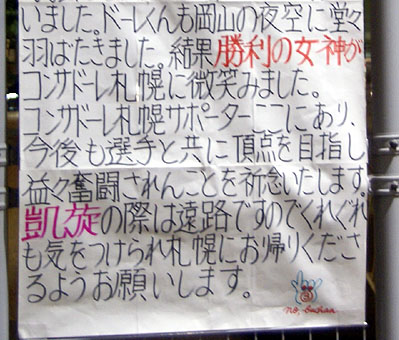 いました。ドーレくんも岡山の夜空に堂々
羽ばたきました。結果勝利の女神が
コンサドーレ札幌に微笑みました。
コンサドーレ札幌サポーターここにあり、
今後も選手と共に頂点を目指し
益々奮闘されんことを祈念いたします。
凱旋の際は遠路ですのでくれぐれ
も気をつけられ札幌にお帰りくださ
るようお願いします。